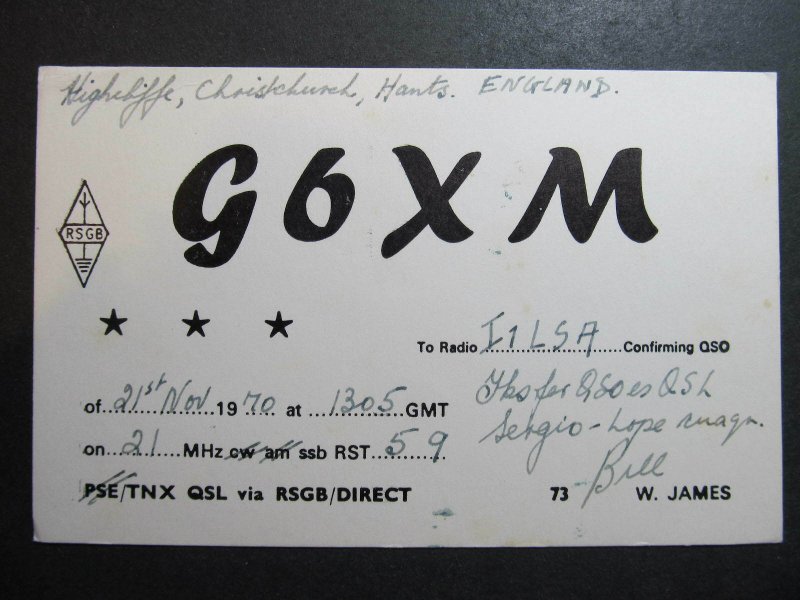 Highcliffe, Christchurch, Hants. ENGLAND.
G6XM
RSGB
To Radio I1LSA Confirming QSO
of 21st Nov 1970 at 1305 GMT
on 21 MHz cw am ssb RST 59
Tks fer QSO es QSL
Sergio - hope
PSE/TNX QSL via RSGB/DIRECT
73 Bill W. JAMES